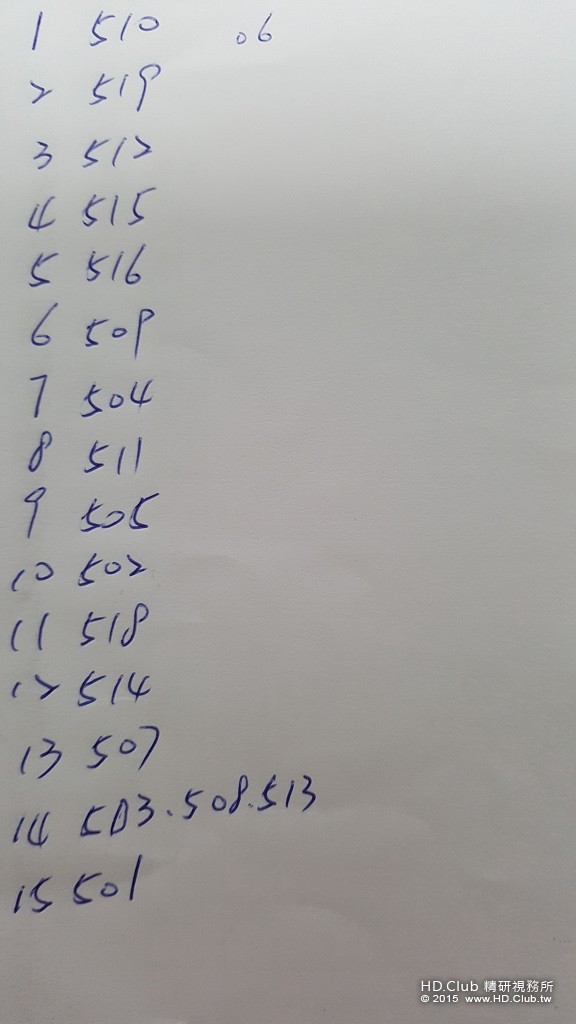 1 510 .06
2 519
3 512
4 515
5 516
6 509
7 504
8 511
9 505
10 502
11 518
12 514
13 507
14 503.508.513
15 501
HD.Club 精研視務所
© 2015 www.HD.Club.tw